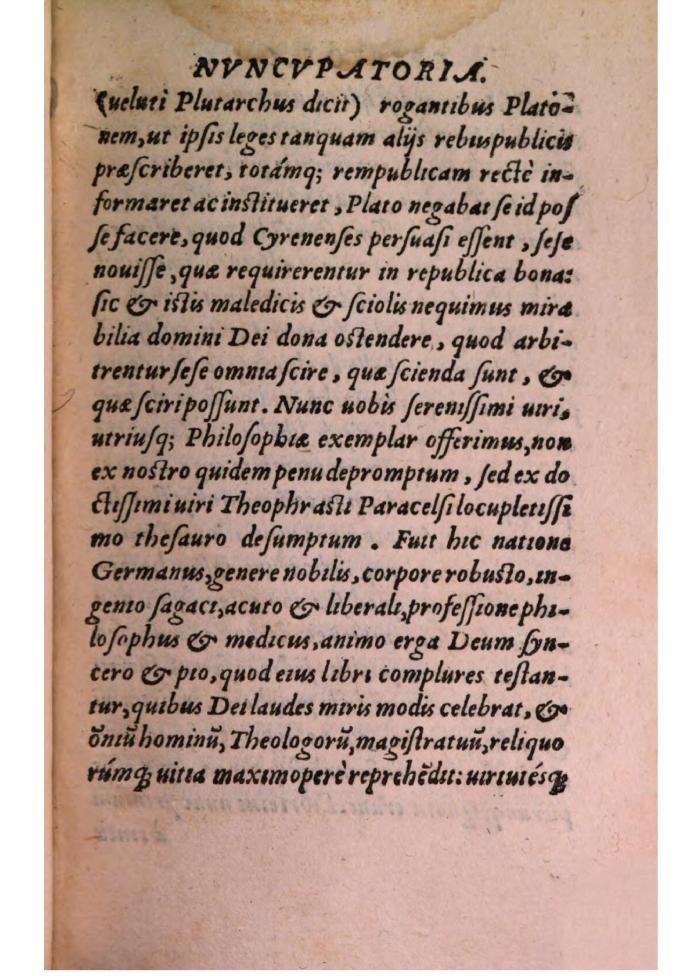 NVNCVPATORIA.
(ueluti Plutarchus dicit) rogantibus Plato-
nem, ut ipsis leges tanquam alijs rebuspublicis
præscriberet, totámq; rempublicam rectè in-
formaret ac institueret, Plato negabat se id pos
se facere, quod Cyrenenses persuasi essent, sese
nouisse, quæ requirerentur in republica bona:
sic & istis maledicis & sciolis nequimus mira
bilia domini Dei dona ostendere, quod arbi-
trentur sese omnia scire, quæ scienda sunt, &
quæ sciri possunt. Nunc uobis serenissimi uiri,
utriusq; Philosophiæ exemplar offerimus, non
ex nostro quidem penu depromptum, sed ex do
ctissimi uiri Theophrasti Paracelsi locupletissi
mo thesauro desumptum. Fuit hic natione
Germanus, genere nobilis, corpore robusto, in-
genio sagaci, acuto & liberali, professione phi-
losophus & medicus, animo erga Deum syn-
cero & pio, quod eius libri complures testan-
tur, quibus Dei laudes miris modis celebrat, &
õniũ hominũ, Theologorũ, magistratuũ, reliquo
rúmq; uitia maximoperè reprehẽdit: uirtutésq;